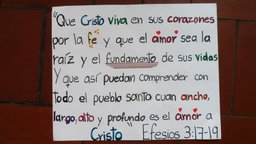 "Que Cristo viva en sus corazones
por la fe y que el amor sea la
raíz y el fundamento de sus vidas
Y que así puedan comprender con
todo el pueblo santo cuan ancho,
largo, alto y profundo es el amor a
Cristo Efesios 3:17-19